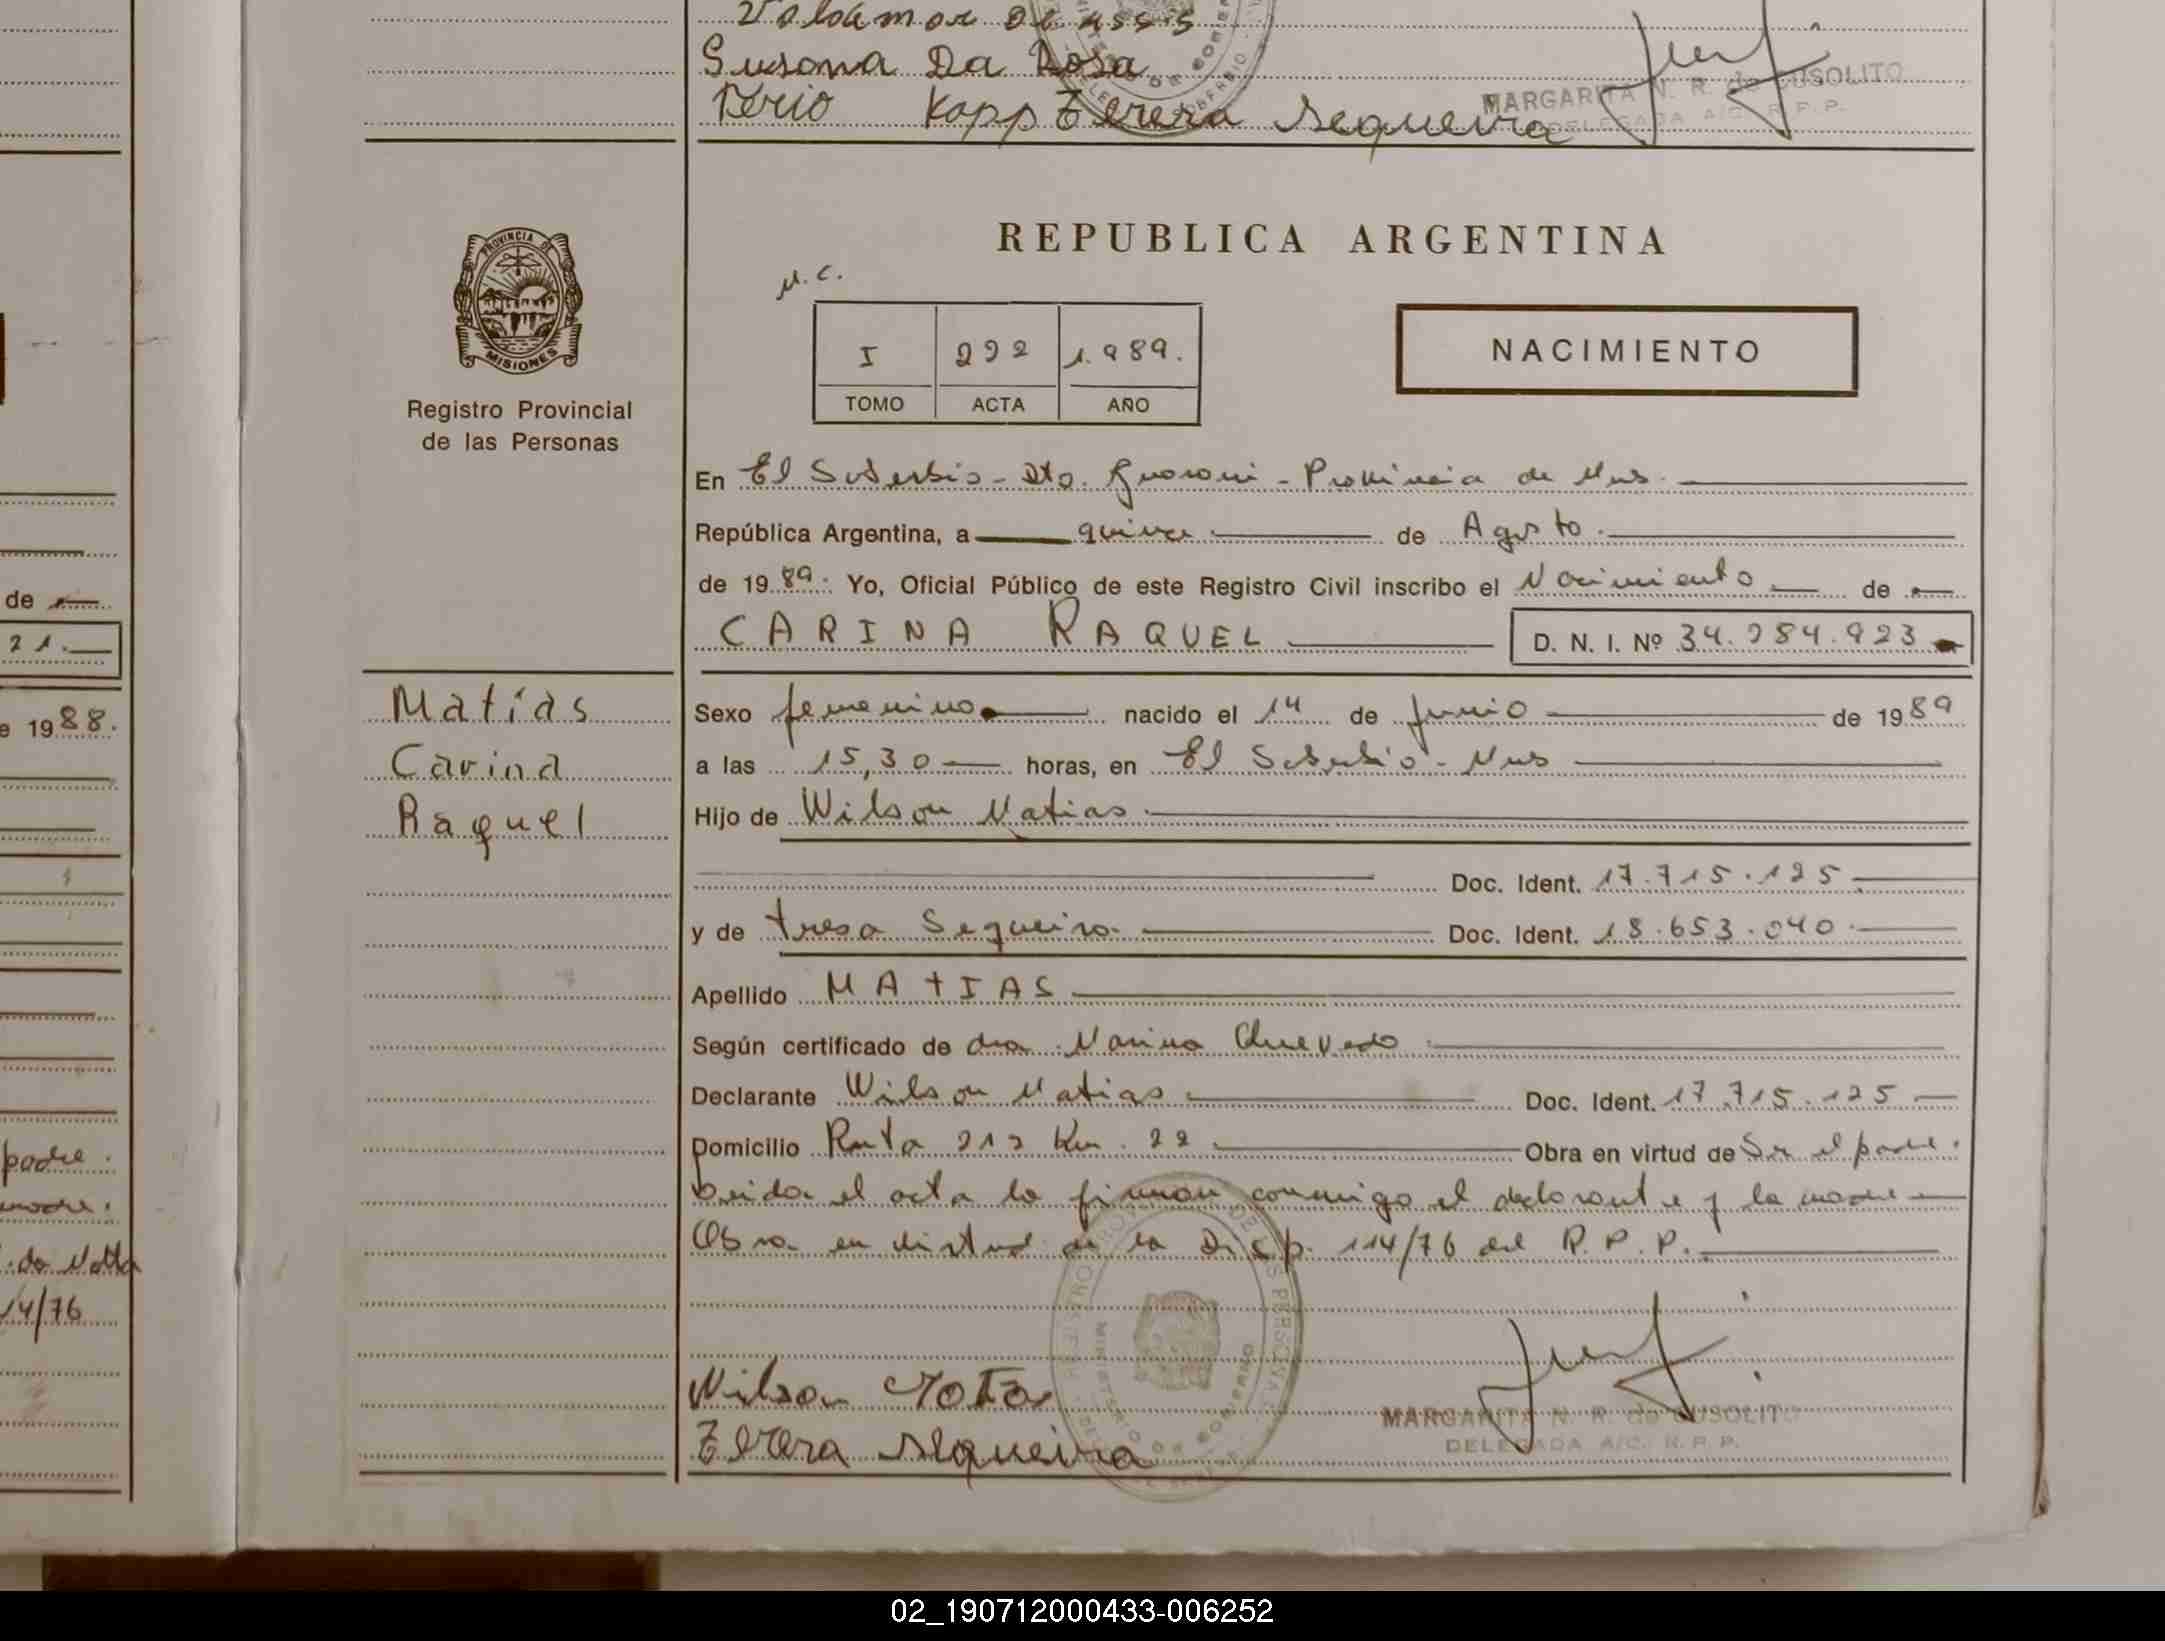 Susana Da Rosa
Kapp Terera Sequeira
MARGARITA N. R. de CUSOLITO
DELEGADA A/C. R. P. P.
PROVINCIA DE
MISIONES
Registro Provincial
de las Personas
REPUBLICA ARGENTINA
N. C.
I 292 1.989.
TOMO ACTA AÑO
NACIMIENTO
En El Soberbio - Dto. Guarani - Provincia de Mns.
República Argentina, a quince de Agosto.
de 1989. Yo, Oficial Público de este Registro Civil inscribo el Nacimiento de
CARINA RAQUEL D. N. I. Nº 34.284.923
Matías
Carina
Raquel
Sexo femenino nacido el 14 de Junio de 1989
a las 15,30 horas, en El Soberbio - Mns
Hijo de Wilson Matias
Doc. Ident. 17.715.125
y de tresa Sequeira Doc. Ident. 18.653.040
Apellido MATIAS
Según certificado de dra. Marina Quevedo
Declarante Wilson Matias Doc. Ident. 17.715.125
Domicilio Ruta 212 Km. 22 Obra en virtud de Ser el padre.
el acta la firman conmigo el declarante y la madre
Obra en virtud de la Disp. 114/76 del R. P. P.
Wilson
Terera Sequeira
MARGARITA N. R. de CUSOLITO
DELEGADA A/C. R. P. P.
de
21.
e 1988.
padre.
madre.
14/76
02_190712000433-006252